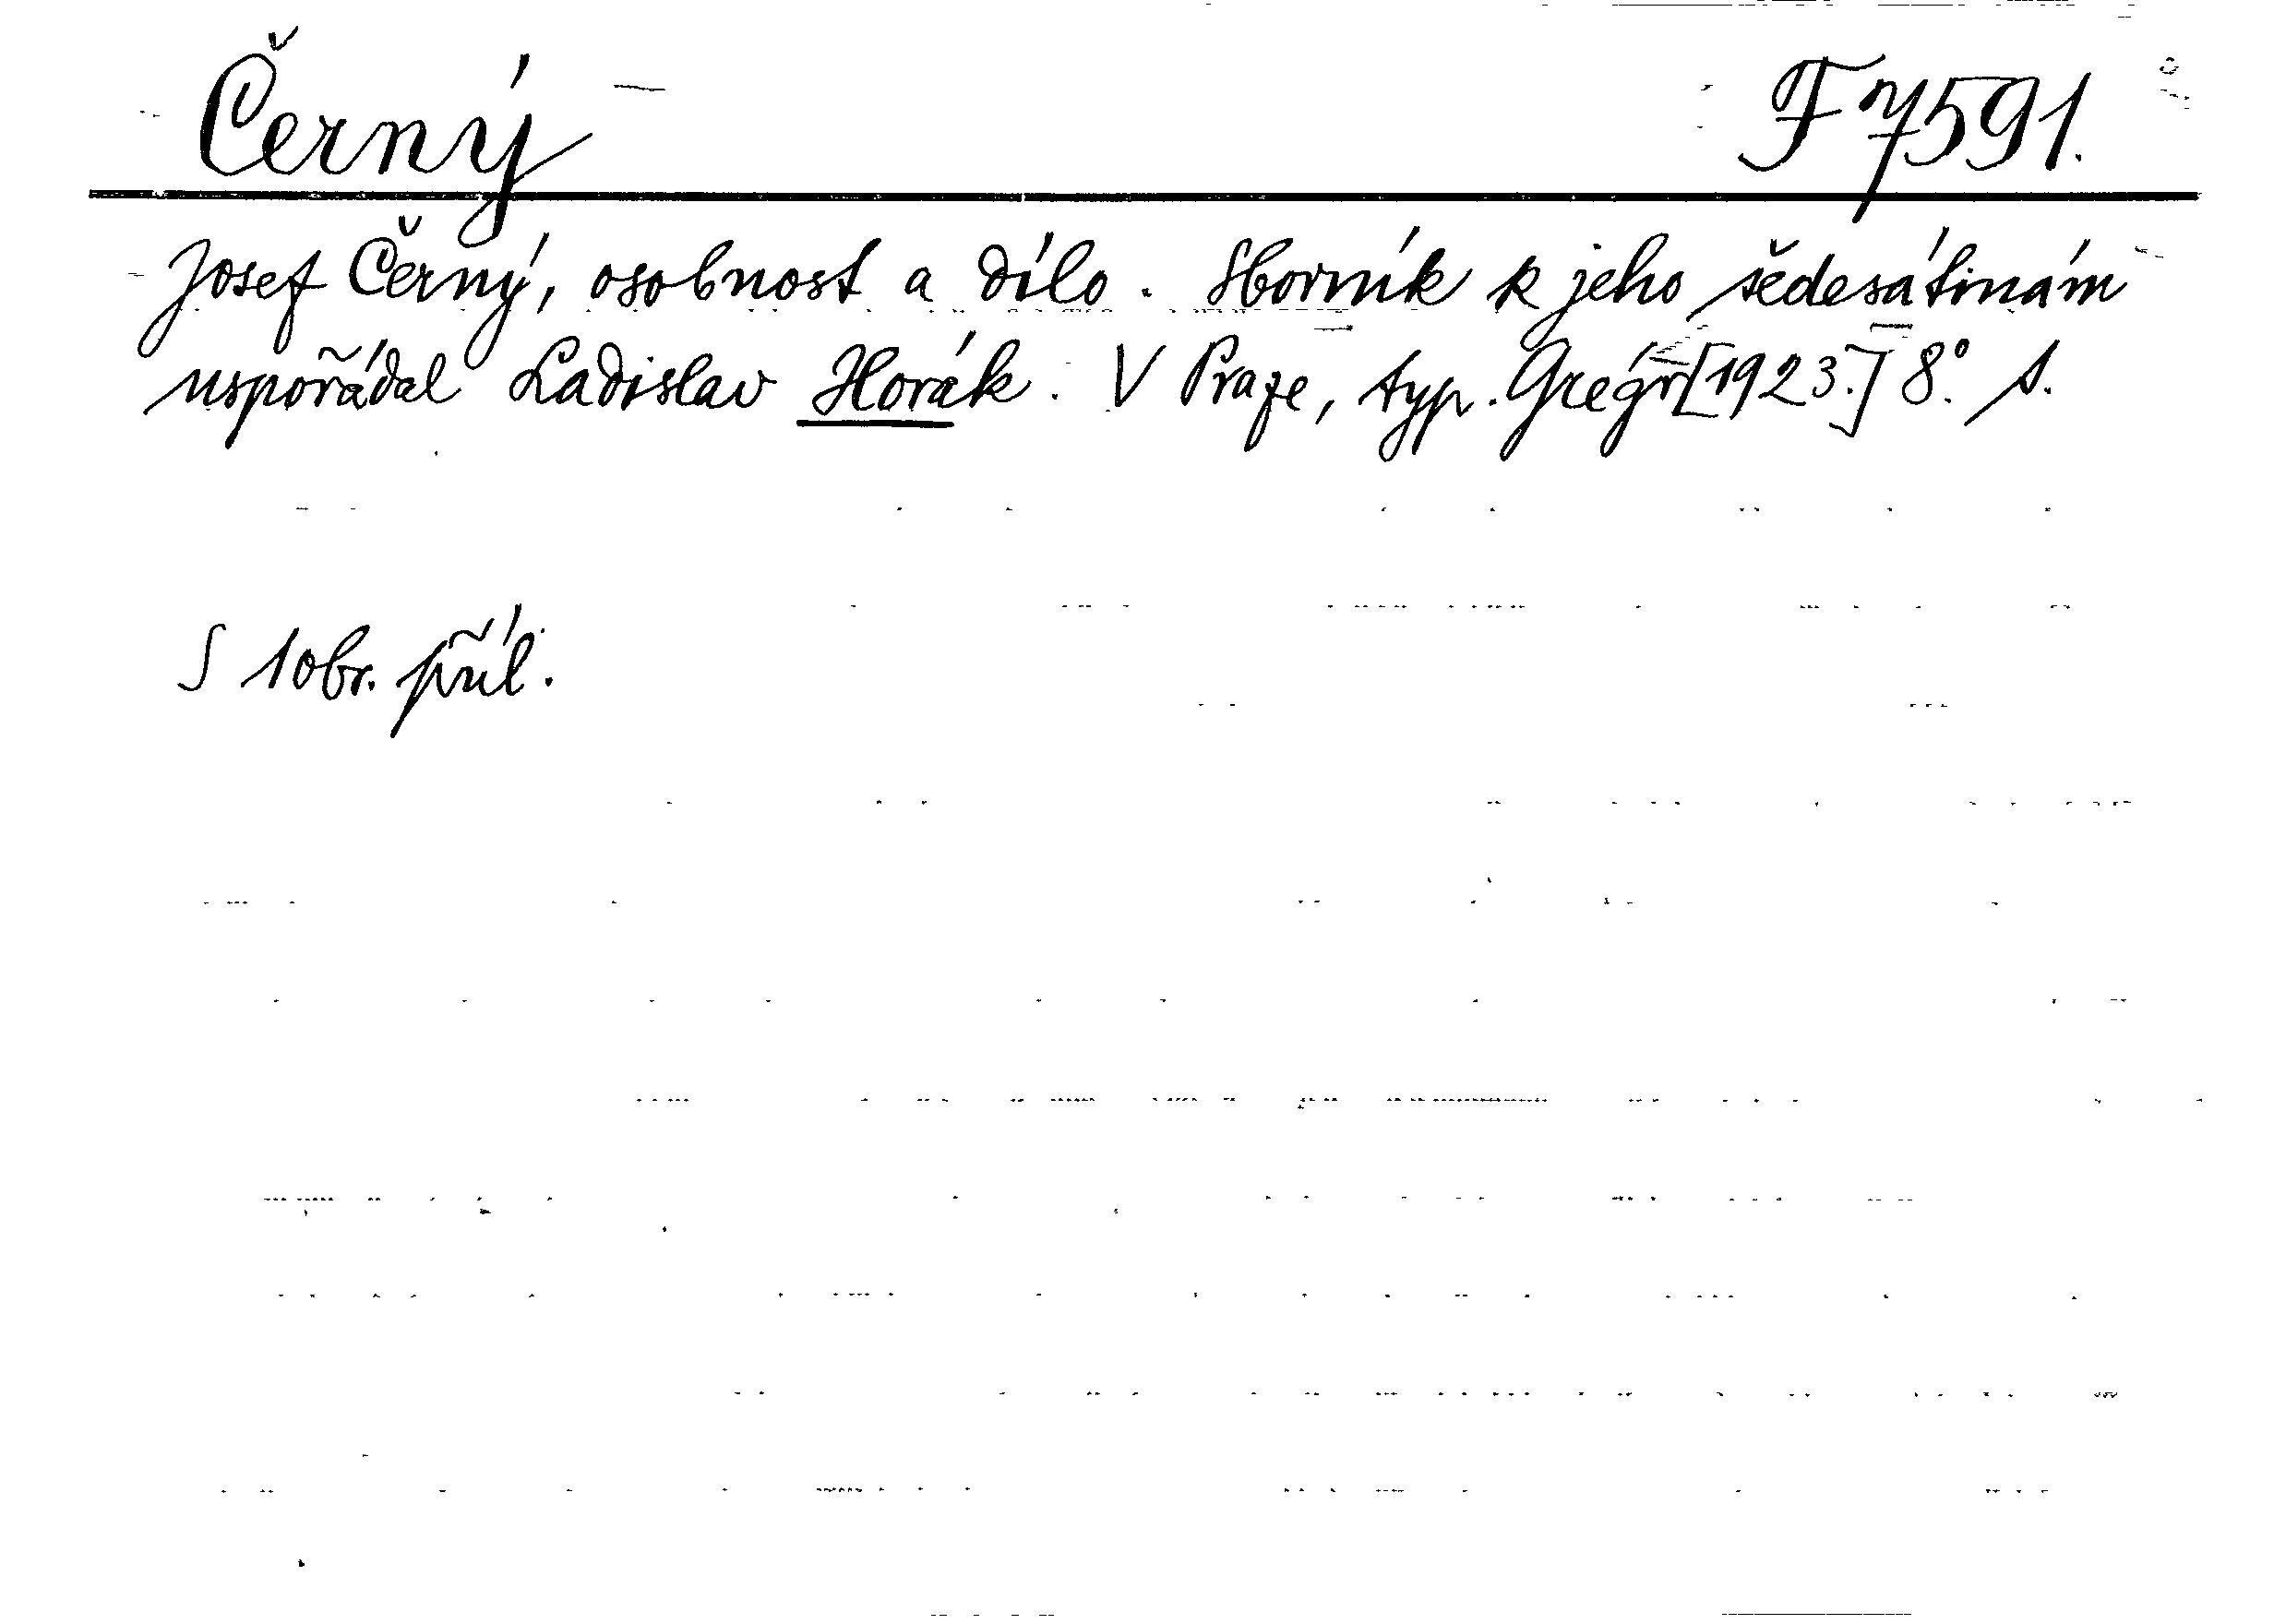 Černý F 7591.
Josef Černý, osobnost a dílo. Sborník k jeho šedesátinám
uspořádal Ladislav Horák. V Praze, typ. Grégr [1923.] 8°. s.
S 1 obr. příl.